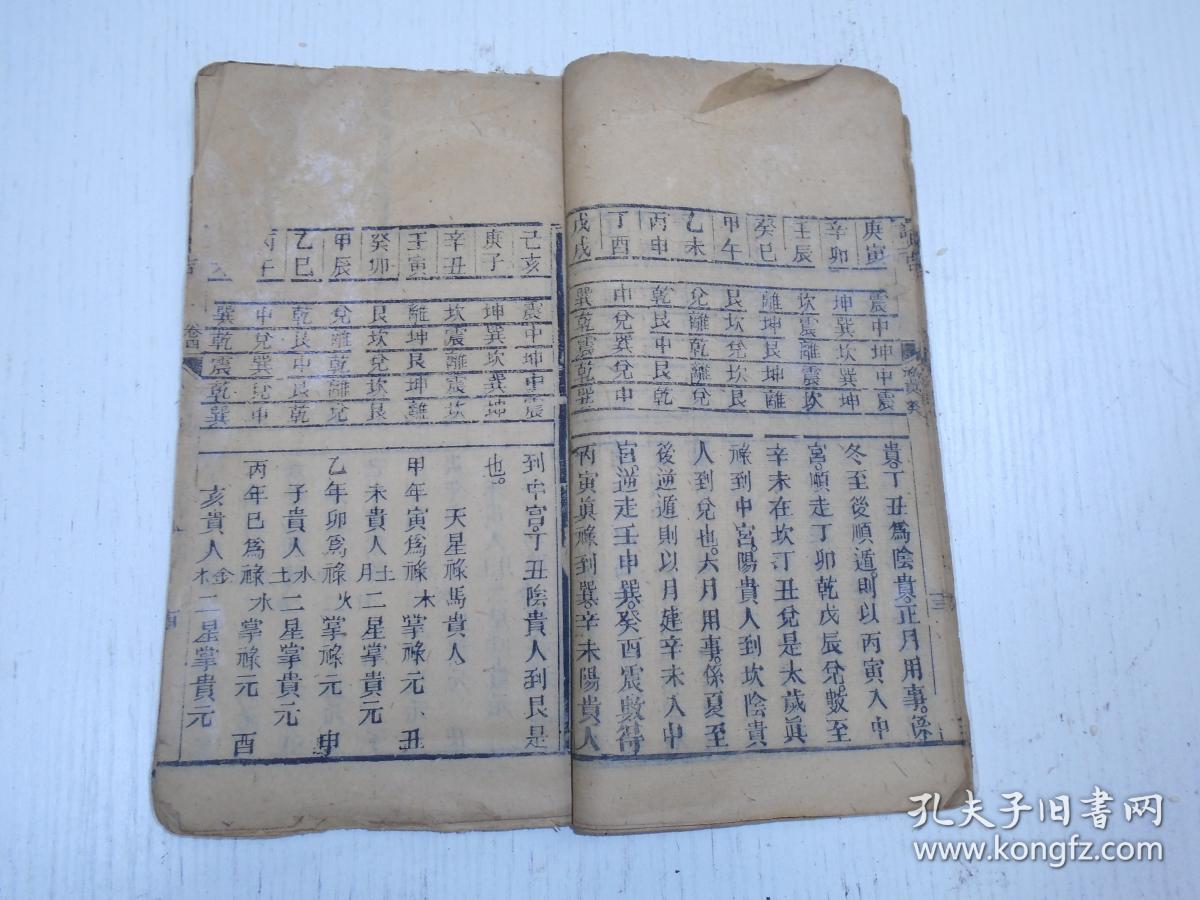 庚寅
辛卯
壬辰
癸巳
甲午
乙未
丙申
丁酉
戊戌
震中坤中震
坤巽坎巽坤
坎震離震坎
離坤艮坤離
艮坎兌坎艮
兌離乾離兌
乾艮中艮乾
中兌巽兌中
巽乾震乾巽
貴丁丑爲陰貴正月用事係
冬至後順遁則以丙寅入中
宮順走丁卯乾戊辰兌數至
辛未在坎丁丑兌是太歲眞
祿到中宮陽貴人到坎陰貴
人到兌也六月用事係夏至
後逆遁則以月建辛未入中
宮逆走壬申巽癸酉震數得
丙寅眞祿到巽辛未陽貴人
己亥
庚子
辛丑
壬寅
癸卯
甲辰
乙巳
丙午
震中坤中震
坤巽坎巽坤
坎震離震坎
離坤艮坤離
艮坎兌坎艮
兌離乾離兌
乾艮中艮乾
中兌巽兌中
巽乾震乾巽
到中宮丁丑陰貴人到艮是
也
天星祿馬貴人
甲年寅爲祿木掌祿元丑
未貴人土月二星掌貴元
乙年卯爲祿火掌祿元申
子貴人水土二星掌貴元
丙年巳爲祿水掌祿元酉
亥貴人金木二星掌貴元
卷四
孔夫子旧书网
www.kongfz.com